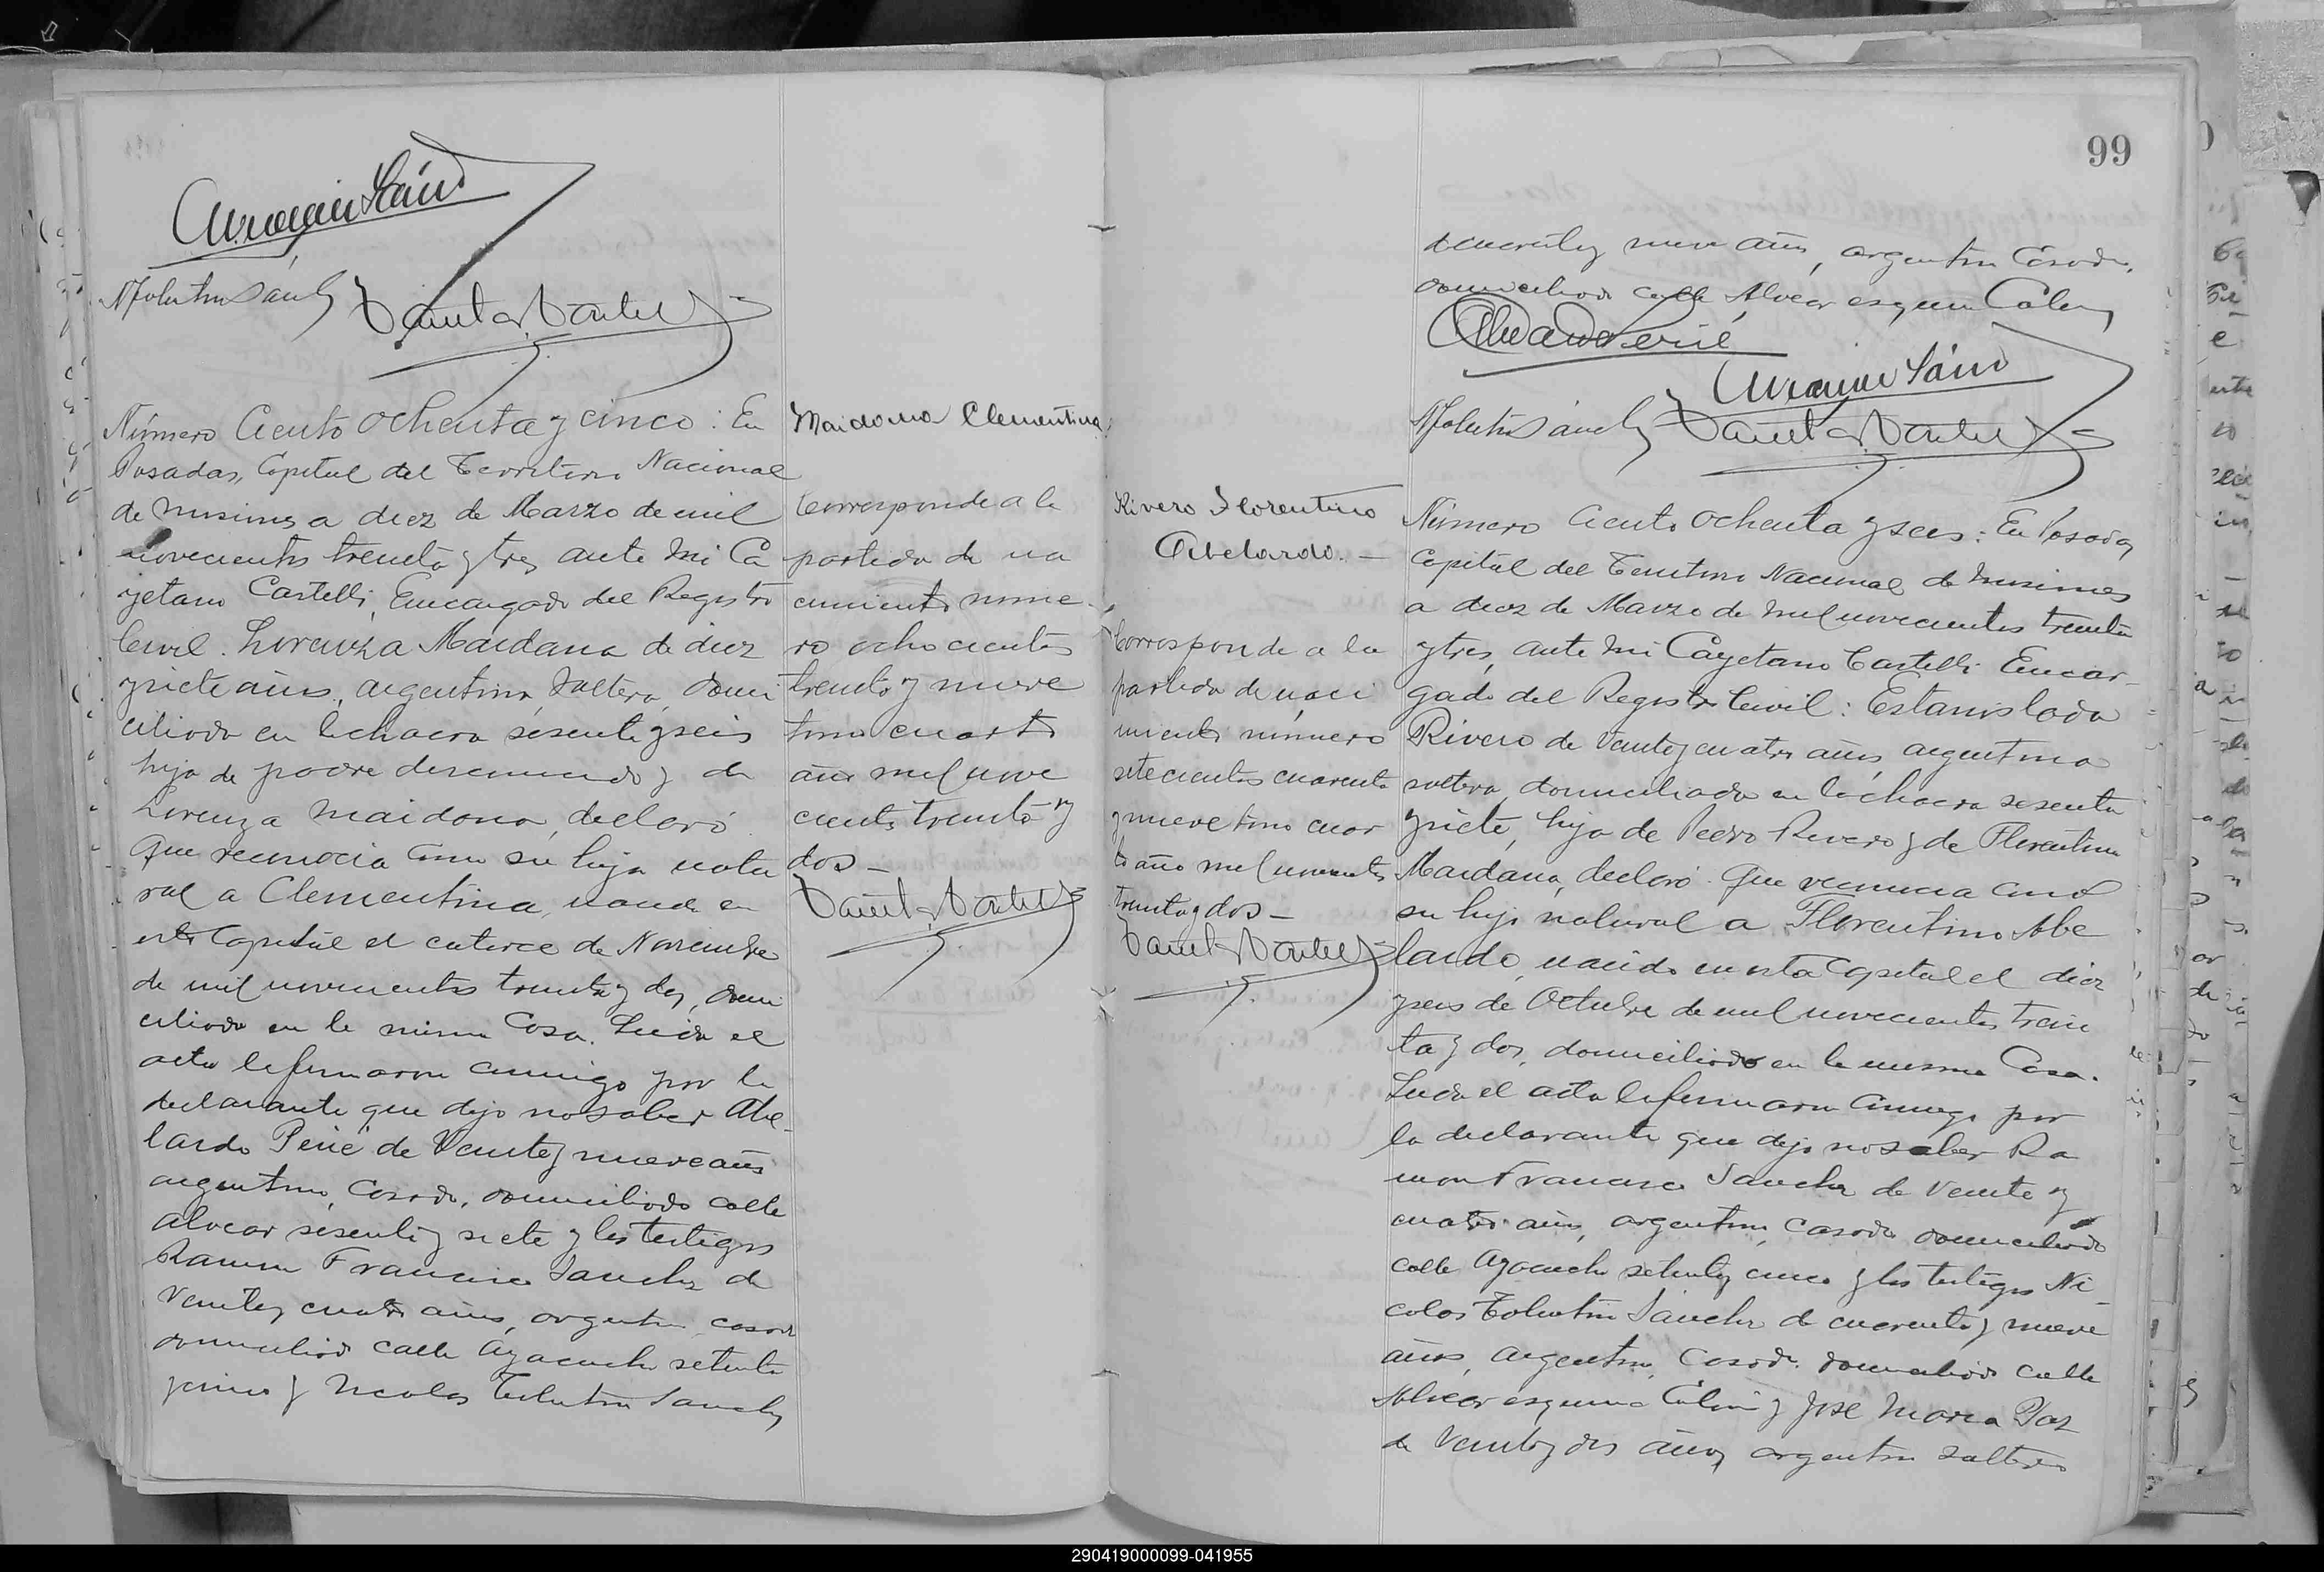 Número Ciento ochenta y cinco: En
Posadas, Capital del Territorio Nacional
de Misiones a diez de Marzo de mil
novecientos treinta y tres, ante mi Ca
yetano Castelli, Encargado del Registro
Civil. Lorenza Maidana de diez
y siete años, argentina, soltera, domi
ciliada en la chacra sesenta y seis
hija de padre desconocido y de
Lorenza Maidana, declaró
Que reconocia como su hija natu
ral a Clementina, nacida en
esta Capital el catorce de Noviembre
de mil novecientos treinta y dos, domi
ciliada en la misma Casa. Leida el
acta la firmaron conmigo por la
declarante que dijo no saber Abe
lardo Perié de Veinte y nueve años
argentino, Casado, domiciliado calle
Alvear sesenta y siete y los testigos
Ramon Francisco Sanchez de
Veinte y cuatro años, argentino, casado
domiciliado calle Ayacucho setenta
y cinco y Nicolas Tolentino Sanchez
Maidana Clementina
Corresponde a la
partida de na
cimiento nume
ro ochocientos
treinta y nueve
tomo cuarto
año mil nove
cientos treinta y
dos —
99
de cuarenta y nueve años, argentino Casado,
domiciliado calle Alvear esquina Colon
Abelardo Perié
Rivero Florentino
Abelardo. —
Corresponde a la
partida de naci
miento número
setecientos cuarenta
y nueve tomo cuar
to año mil novecientos
treinta y dos —
Número Ciento Ochenta y seis: En Posadas,
Capital del Territorio Nacional de Misiones
a diez de Marzo de mil novecientos treinta
y tres, ante mi Cayetano Castelli Encar-
gado del Registro Civil: Estanislada
Rivero de Veinte y cuatro años, argentina
soltera, domiciliada en la chacra sesenta
y siete, hija de Pedro Rivero y de Florentina
Maidana, declaró. Que reconocia como
su hijo natural a Florentino Abe
lardo, nacido en esta Capital el diez
y seis de Octubre de mil novecientos trein
ta y dos, domiciliado en la misma Casa.
Leida el acta la firmaron conmigo por
la declarante que dijo no saber Ra
mon Francisco Sanchez de Veinte y
cuatro años, argentino, casado domiciliado
calle Ayacucho setenta y cinco y los testigos Ni-
colas Tolentino Sanchez de cuarenta y nueve
años, argentino, Casado. domiciliado calle
Alvear esquina Colon y José Maria Paz
de Veinte y dos años, argentino soltero
290419000099-041955